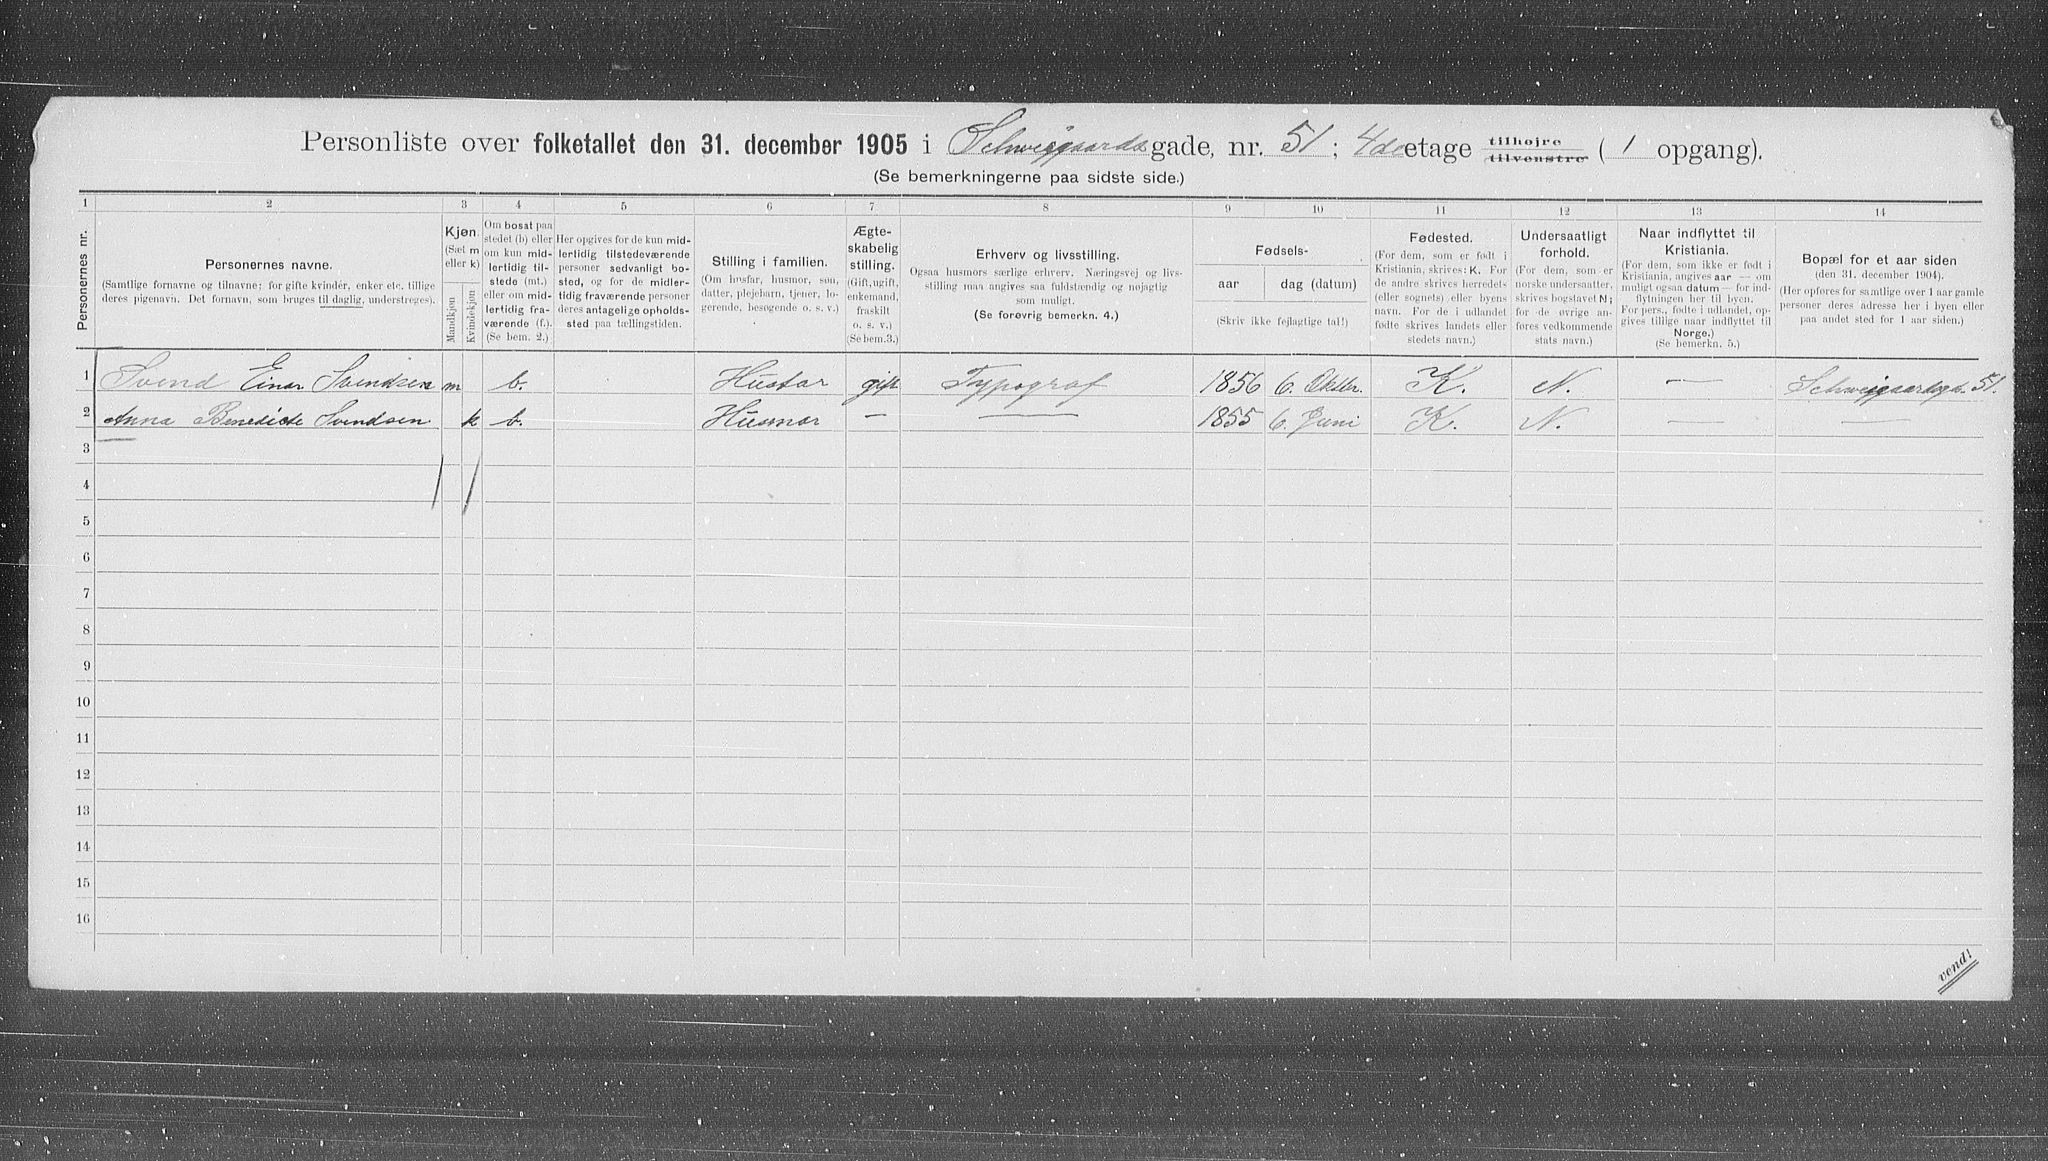 Personliste over folketallet den 31. december 1905 i Schweigaardsgade, nr. 51; 4de etage tilhøjre tilvenstre (1 opgang).
(Se bemerkningerne paa sidste side.)
1 2 3 4 5 6 7 8 9 10 11 12 13 14
Personernes nr.
Personernes navne.
(Samtlige fornavne og tilnavne; for gifte kvinder, enker etc. tillige deres pigenavn. Det fornavn, som bruges til daglig, understreges).
Kjøn.
(Sæt m eller k)
Mandkjøn
Kvindekjøn
Om bosat paa stedet (b) eller om kun midlertidig tilstede (mt.) eller om midlertidig fraværende (f.).
(Se bem. 2.)
Her opgives for de kun midlertidig tilstedeværende personer sedvanligt bosted, og for de midlertidig fraværende personer deres antagelige opholdssted paa tællingstiden.
Stilling i familien.
(Om hosfar, husmor, søn, datter, plejebarn, tjener, logerende, besøgende o. s. v.)
Ægteskabelig stilling.
(Gift, ugift, enkemand, fraskilt o. s. v.)
(Se bem. 3.)
Erhverv og livsstilling.
Ogsaa husmors særlige erhverv. Næringsvej og livsstilling maa angives saa fuldstændig og nøjagtig som muligt.
(Se forøvrig bemerkn. 4.)
Fødsels-
aar
dag (datum)
(Skriv ikke fejlagtige tal!)
Fødested.
(For dem, som er født i Kristiania, skrives: K. For de andre skrives herredets (eller sognets) eller byens navn. For de i udlandet fødte skrives landets eller stedets navn.)
Undersaatligt forhold.
(For dem, som er norske undersaatter, skrives bogstavet N; for de øvrige anføres vedkommende stats navn.)
Naar indflyttet til Kristiania.
(For dem, som ikke er født i Kristiania, angives aar — om muligt ogsaa datum — for indflytningen her til byen. For pers., fødte i udlandet, opgives tillige naar indflyttet til Norge.)
(Se bemerkn. 5.)
Bopæl for et aar siden
(den 31. december 1904).
(Her opføres for samtlige over 1 aar gamle personer deres adresse her i byen eller paa andet sted for 1 aar siden.)
1 Svend Einar Svendsen m b. Husfar gift Typograf 1856 6. Oktbr. K. N. — Schweigaardsgd. 51.
2 Anna Benedicte Svendsen k b. Husmor — — 1855 6. Juni K. N. — —
3
4
5
6
7
8
9
10
11
12
13
14
15
16
vend!